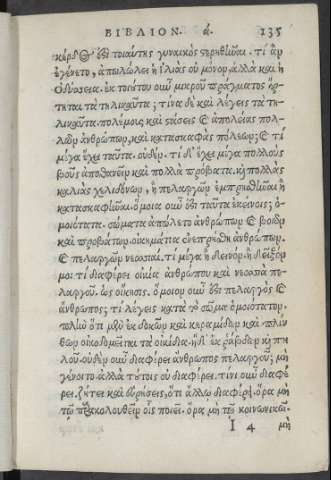 ΒΙΒΛΙΟΝ. ά. 135
κέρδος ἐστὶ τοιαύτης γυναικὸς στερηθῆναι. τί ἂν
ἐγένετο, ἀπωλώλει ἡ ἰλιὰς οὐ μόνον, ἀλλὰ καὶ ἡ
ὀδύσσεια. ἐκ τοιούτου οὖν μικροῦ πράγματος ἤρ-
τηται τὰ τηλικαῦτα; τίνα δὲ καὶ λέγεις τὰ τη-
λικαῦτα. πολέμους καὶ στάσεις καὶ ἀπωλείας πολ-
λῶν ἀνθρώπων, καὶ κατασκαφὰς πόλεων; καὶ τί
μέγα ἔχει ταῦτα. οὐδέν. τί δ' ἔχει μέγα πολλοὺς
βοῦς ἀποθανεῖν καὶ πολλὰ πρόβατα. καὶ πολλὰς
καλιὰς χελιδόνων, ἢ πελαργῶν ἐμπρησθῆναι καὶ
κατασκαφῆναι. ὅμοια οὖν ἐστὶ ταῦτα ἐκείνοις; ὁ-
μοιότατα. σώματα ἀπώλετο ἀνθρώπων καὶ βοῶν
καὶ προβάτων. οἰκημάτια ἐνεπρήσθη ἀνθρώπων.
καὶ πελαργῶν νεοσσιαί. τί μέγα ἢ δεινόν. ἢ δεῖξόν
μοι τί διαφέρει οἰκία ἀνθρώπου καὶ νεοσσιὰ πε-
λαργοῦ. ὡς οἴκησις. ὅμοιον οὖν ἐστὶ πελαργὸς καὶ
ἄνθρωπος; τί λέγεις κατὰ τὸ σῶμα ὁμοιότατον.
πλὴν ὅτι μὲν ἐκ δοκῶν καὶ κεραμίδων καὶ πλίν
θων οἰκοδομεῖται τὰ οἰκίδια. ἡ δ' ἐκ ῥάβδων καὶ πη
λοῦ. οὐδὲν οὖν διαφέρει ἄνθρωπος πελαργοῦ; μὴ
γένοιτο. ἀλλὰ τούτοις οὐ διαφέρει. τίνι οὖν διαφέ
ρει. ζήτει καὶ εὑρήσεις, ὅτι ἄλλῳ διαφέρει. ὅρα μὴ
τῷ παρακολουθεῖν οἷς ποιεῖ. ὅρα μὴ τῷ κοινωνικῷ.
I 4 μὴ